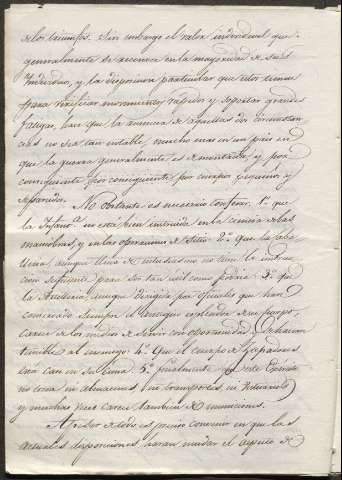 de los triunfos. Sin embargo el valor individual que
generalmente se reconoce en la mayoridad de sus
Individuos, y la disposicion particular que estos tienen
para verificar movimientos rapidos y soportar grandes
fatigas, hace que la ausencia de aquellas dos circunstan-
cias no sea tan notable, mucho mas en un pais en
que la guerra generalmente es de montaña, y por
consiguiente por consiguiente por cuerpos pequeños y
separados.
No obstante es necesario confesar. 1º que
la Infantª no está bien instruida en la ciencia de las
maniobras, y en las operaciones de sitio. 2º que la caba-
lleria, aunque llena de entusiasmo no tiene la instruc-
cion suficiente para ser tan util como podria. 3º que
la Artilleria, aunque dirigida por oficiales que han
conservado siempre el
carece de los medios de servir con oportunidad, y
temible al enemigo. 4º Que el cuerpo de Zapadores
está casi en su cuna. 5º finalmente que este Exercito
no tiene ni almacenes, ni transportes, ni Vestuario
y muchas veces carece tambien de municiones.
A pesar de todo es preciso convenir en que las
actuales disposiciones haran mudar el aspecto de